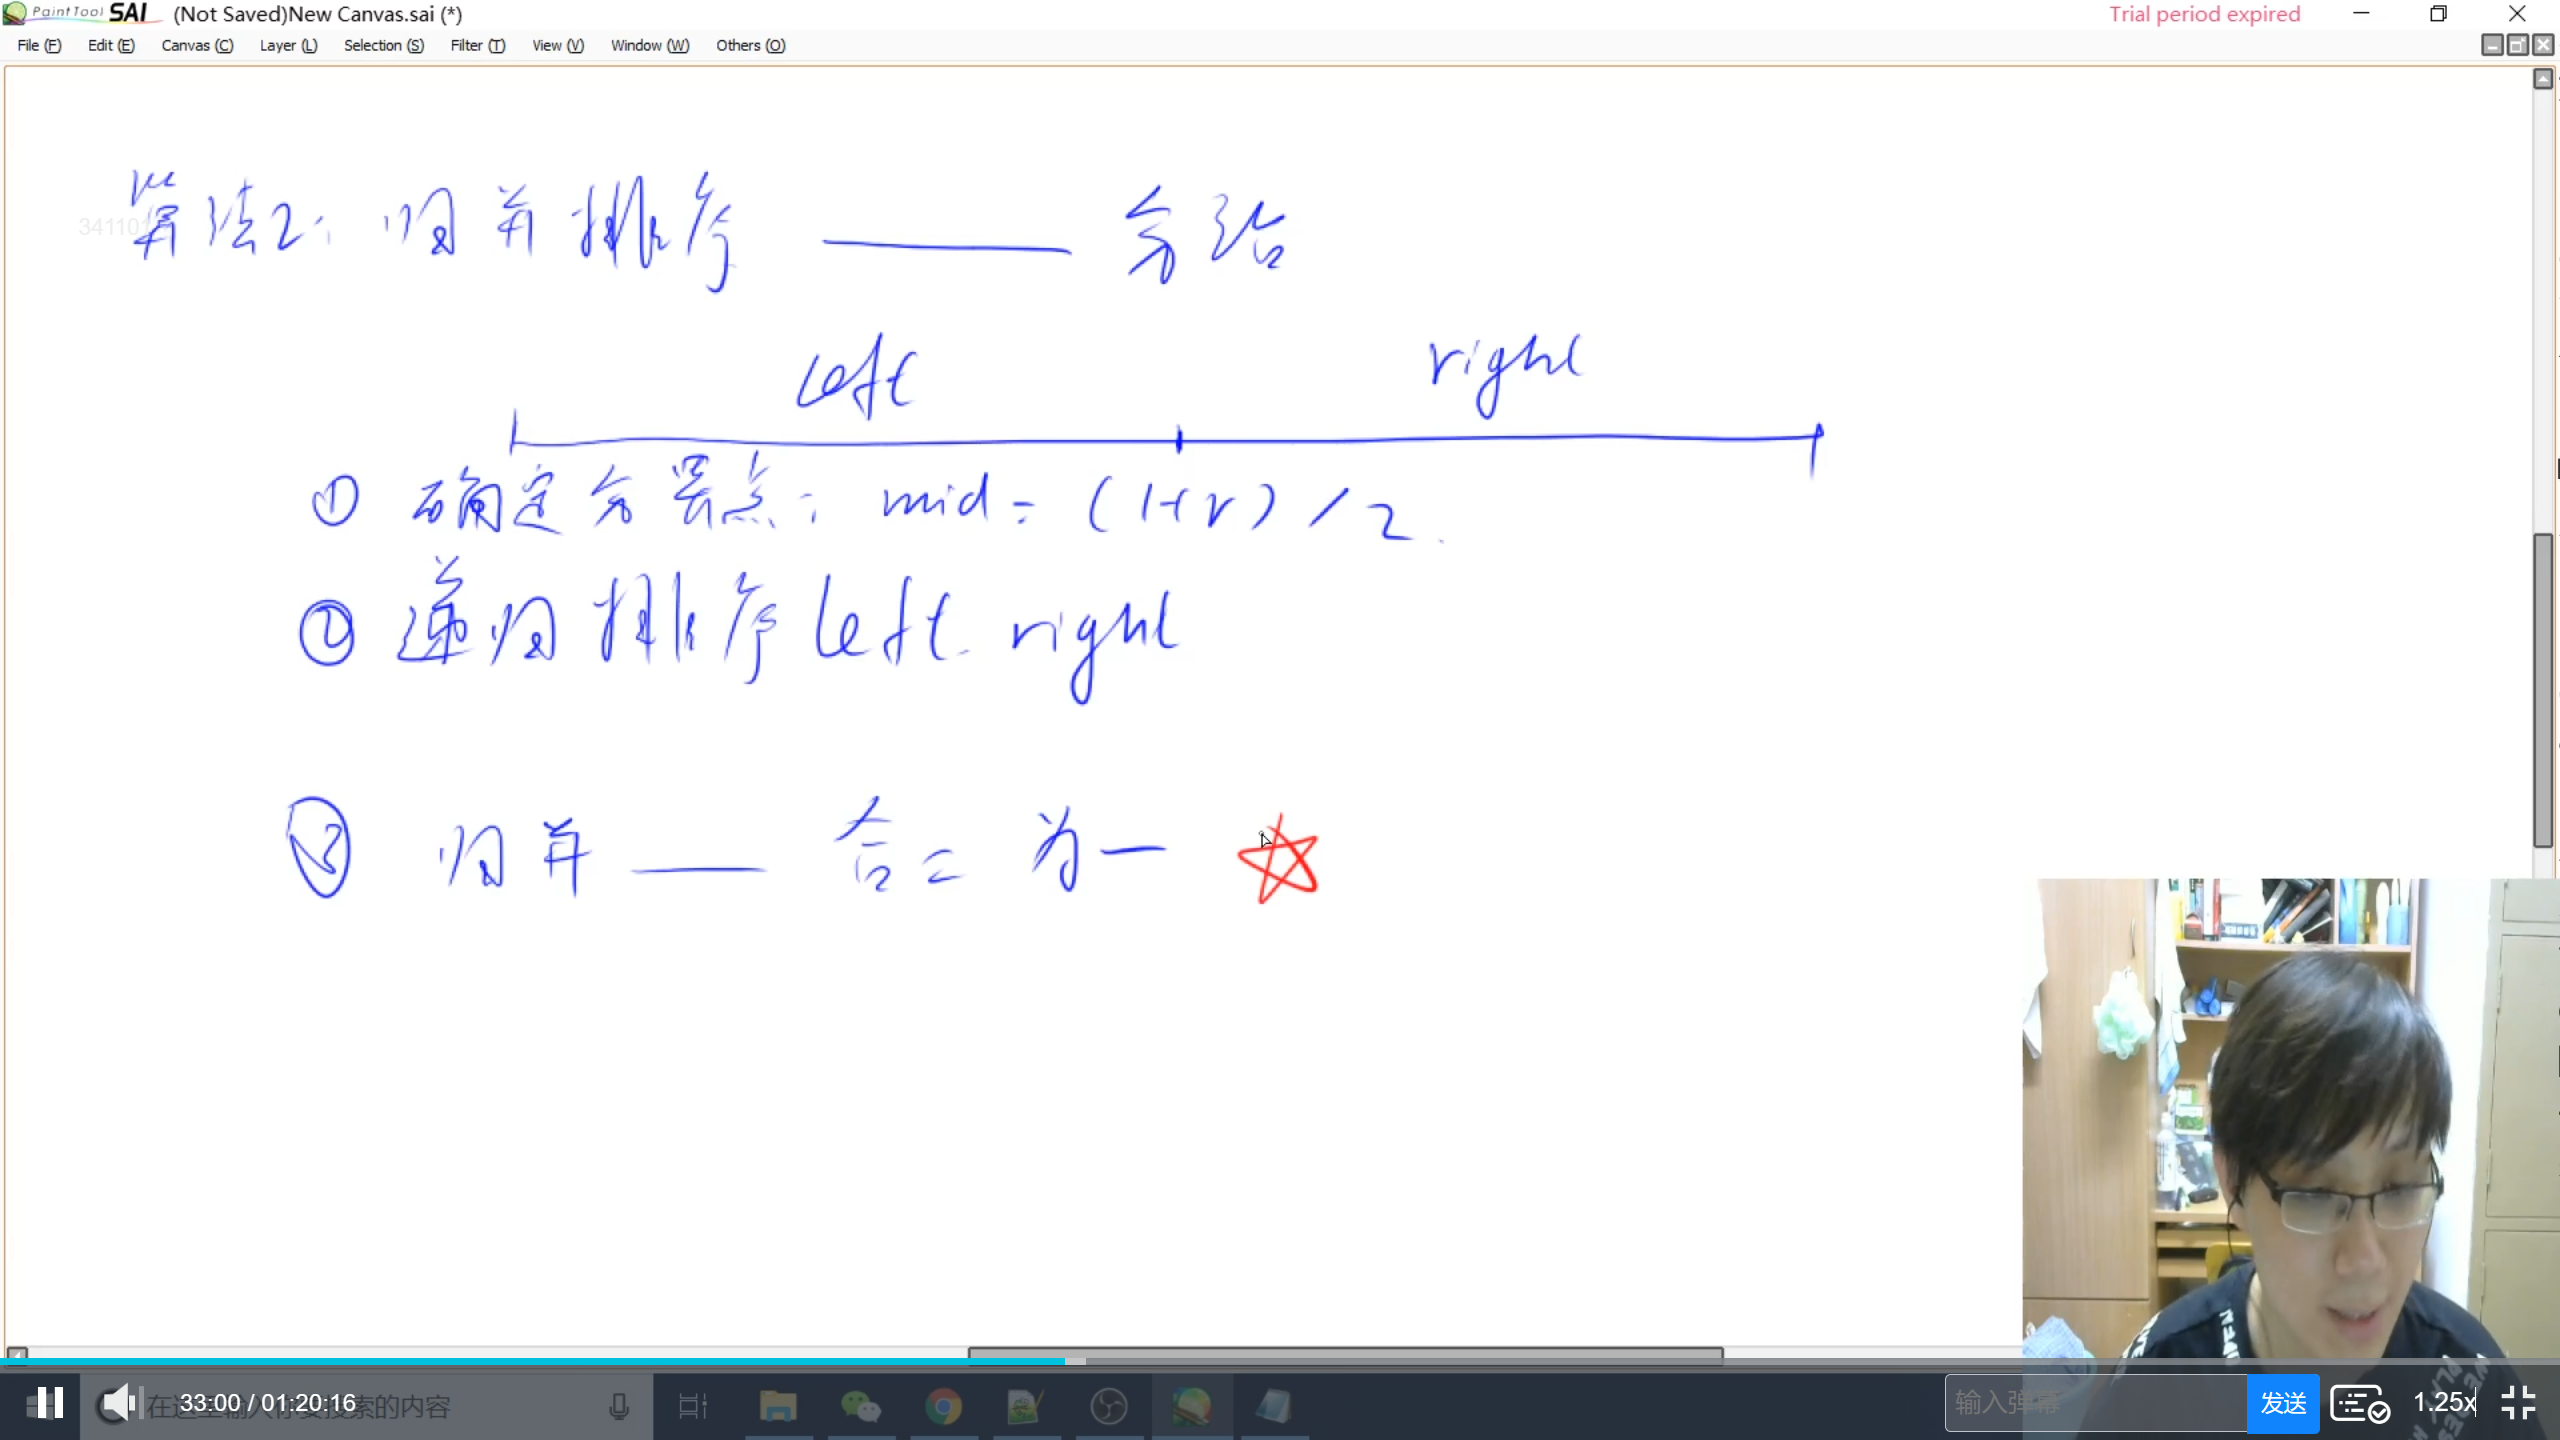 PaintTool SAI (Not Saved)New Canvas.sai (*) Trial period expired
File (F) Edit (E) Canvas (C) Layer (L) Selection (S) Filter (T) View (V) Window (W) Others (O)
算法2: 归并排序 —— 分治
left right
① 确定分界点: mid = (l+r) / 2.
② 递归排序 left. right
③ 归并 —— 合二为一
33:00 / 01:20:16
在这里输入你要搜索的内容
输入弹幕
发送
1.25x